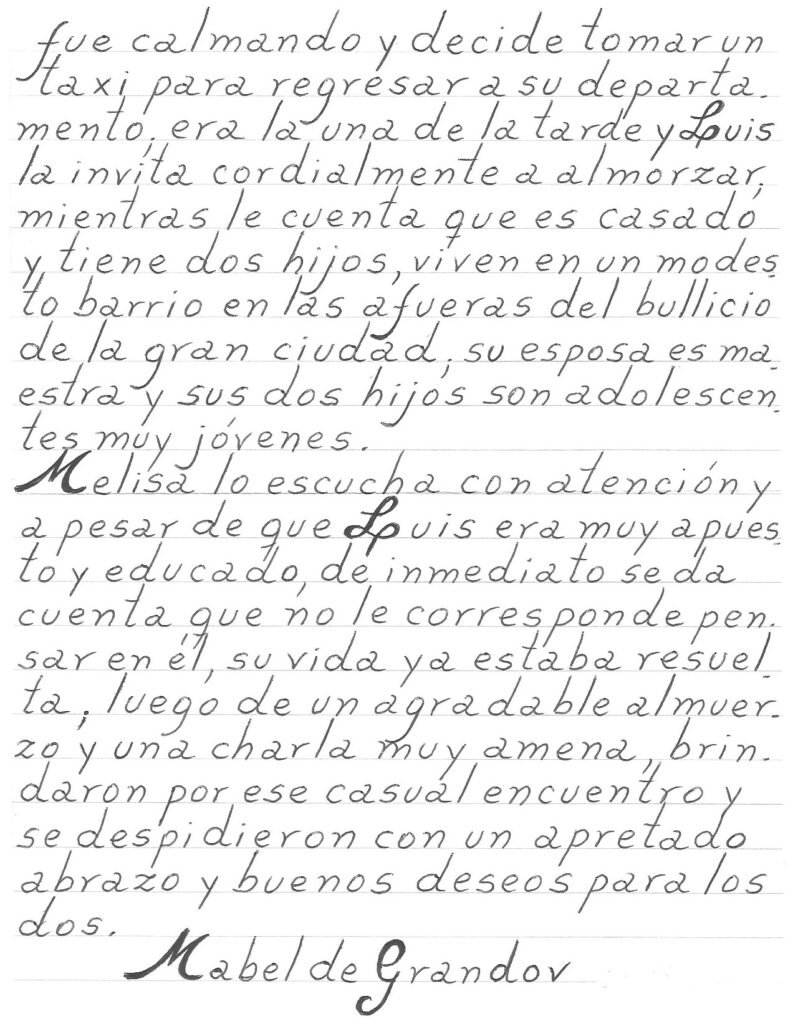 fue calmando y decide tomar un
taxi para regresar a su departa-
mento; era la una de la tarde y Luis
la invita cordialmente a almorzar,
mientras le cuenta que es casado
y tiene dos hijos, viven en un modes-
to barrio en las afueras del bullicio
de la gran ciudad; su esposa es ma-
estra y sus dos hijos son adolescen-
tes muy jóvenes.
Melisa lo escucha con atención y
a pesar de que Luis era muy apues-
to y educado, de inmediato se da
cuenta que no le corresponde pen-
sar en él, su vida ya estaba resuel-
ta; luego de un agradable almuer-
zo y una charla muy amena, brin-
daron por ese casual encuentro y
se despidieron con un apretado
abrazo y buenos deseos para los
dos.
Mabel de Grandov